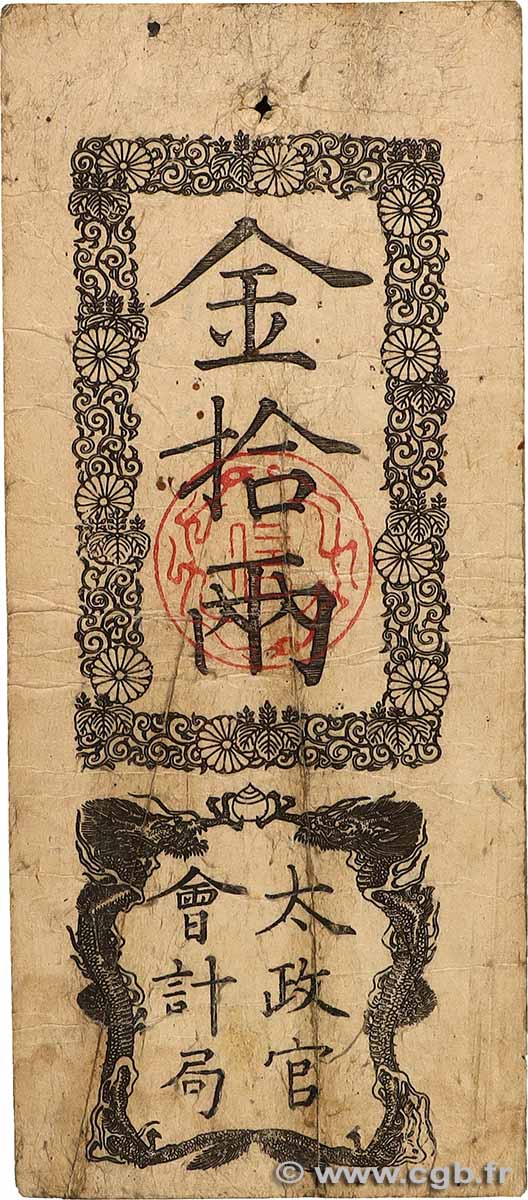 金拾兩
太政官
會計局
© www.cgb.fr